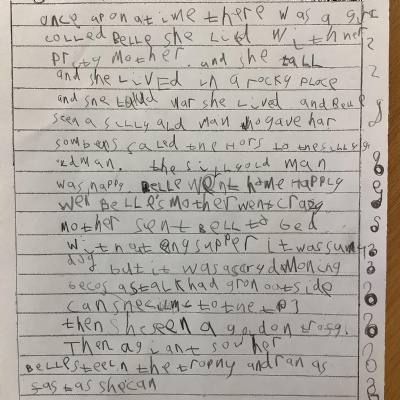 once apon a time there was a girl
colled BELLE she Lived With her
prity Mother. and she tall
and she LIVED in a rocky place
and she told war she lived and Belle
seen a silly old man ho gave har
som bens called the hors to the silly
old man. the silly old man
was happy. BELLE went home Happly
Wen BELLE'S Mother went crazy
Mother sent BELL to bed
With nat eny supper it was suny
day but it was a scary
becos a stalk had gron outside
then she seen a goldon
Then a giant sou her
Belle steeln the trophy and ran as
fast as she can